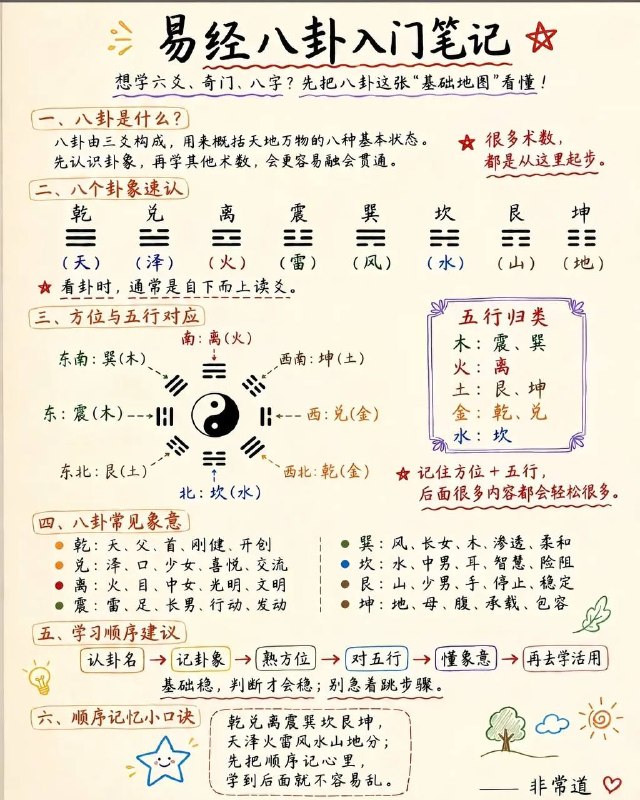 易经八卦入门笔记
想学六爻、奇门、八字？先把八卦这张“基础地图”看懂！
一、八卦是什么？
八卦由三爻构成，用来概括天地万物的八种基本状态。
先认识卦象，再学其他术数，会更容易融会贯通。
很多术数，
都是从这里起步。
二、八个卦象速认
乾 兑 离 震 巽 坎 艮 坤
(天) (泽) (火) (雷) (风) (水) (山) (地)
看卦时，通常是自下而上读爻。
三、方位与五行对应
南：离(火)
东南：巽(木)
西南：坤(土)
东：震(木)
西：兑(金)
东北：艮(土)
西北：乾(金)
北：坎(水)
五行归类
木：震、巽
火：离
土：艮、坤
金：乾、兑
水：坎
记住方位＋五行，
后面很多内容都会轻松很多。
四、八卦常见象意
乾：天、父、首、刚健、开创
兑：泽、口、少女、喜悦、交流
离：火、目、中女、光明、文明
震：雷、足、长男、行动、发动
巽：风、长女、木、渗透、柔和
坎：水、中男、耳、智慧、险阻
艮：山、少男、手、停止、稳定
坤：地、母、腹、承载、包容
五、学习顺序建议
认卦名 → 记卦象 → 熟方位 → 对五行 → 懂象意 → 再去学活用
基础稳，判断才会稳；别急着跳步骤。
六、顺序记忆小口诀
乾兑离震巽坎艮坤，
天泽火雷风水山地分；
先把顺序记心里，
学到后面就不容易乱。
—— 非常道